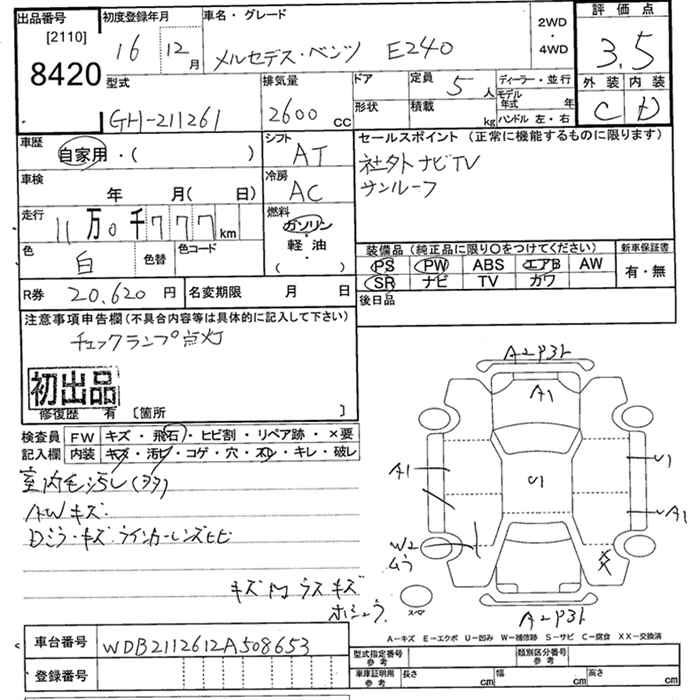 出品番号 初度登録年月 車名・グレード 2WD・4WD 評価点
[2110] 16 12月 メルセデス・ベンツ E240 3.5
8420 型式 排気量 ドア 定員 5人 ディーラー・並行 外装 内装
モデル年式 年
GH-211261 2600cc 形状 積載 kg ハンドル 左・右 C D
車歴 自家用・( ) シフト AT セールスポイント (正常に機能するものに限ります)
社外ナビTV
車検 年 月( 日) 冷房 AC サンルーフ
走行 11万0千777km 燃料 ガソリン
軽・油
( )
色 白 色替 色コード 装備品 (純正品に限り○をつけてください) 新車保証書
PS PW ABS エアB AW 有・無
SR ナビ TV カワ
R券 20,620円 名変期限 月 日 後日品
注意事項申告欄 (不具合内容等は具体的に記入して下さい)
チェックランプ点灯
初出品
修復歴 有 [箇所 ]
検査員 FW キズ・飛石・ヒビ割・リペア跡・×要
記入欄 内装 キズ・汚ビ・コゲ・穴・スレ・キレ・破レ
室内毛汚レ
AWキズ
Dミラ・キズ ライ
キズ 内
A2P3ト
A1
A1 U1 U1
UA1
W2
A2P3ト
A－キズ E－エクボ U－凹み W－補修跡 S－サビ C－腐食 XX－交換済
車台番号 WDB2112612A508653 型式指定番号 参考 類別区分番号 参考
登録番号 車庫証明用 参考 長さ cm 幅 cm 高さ cm